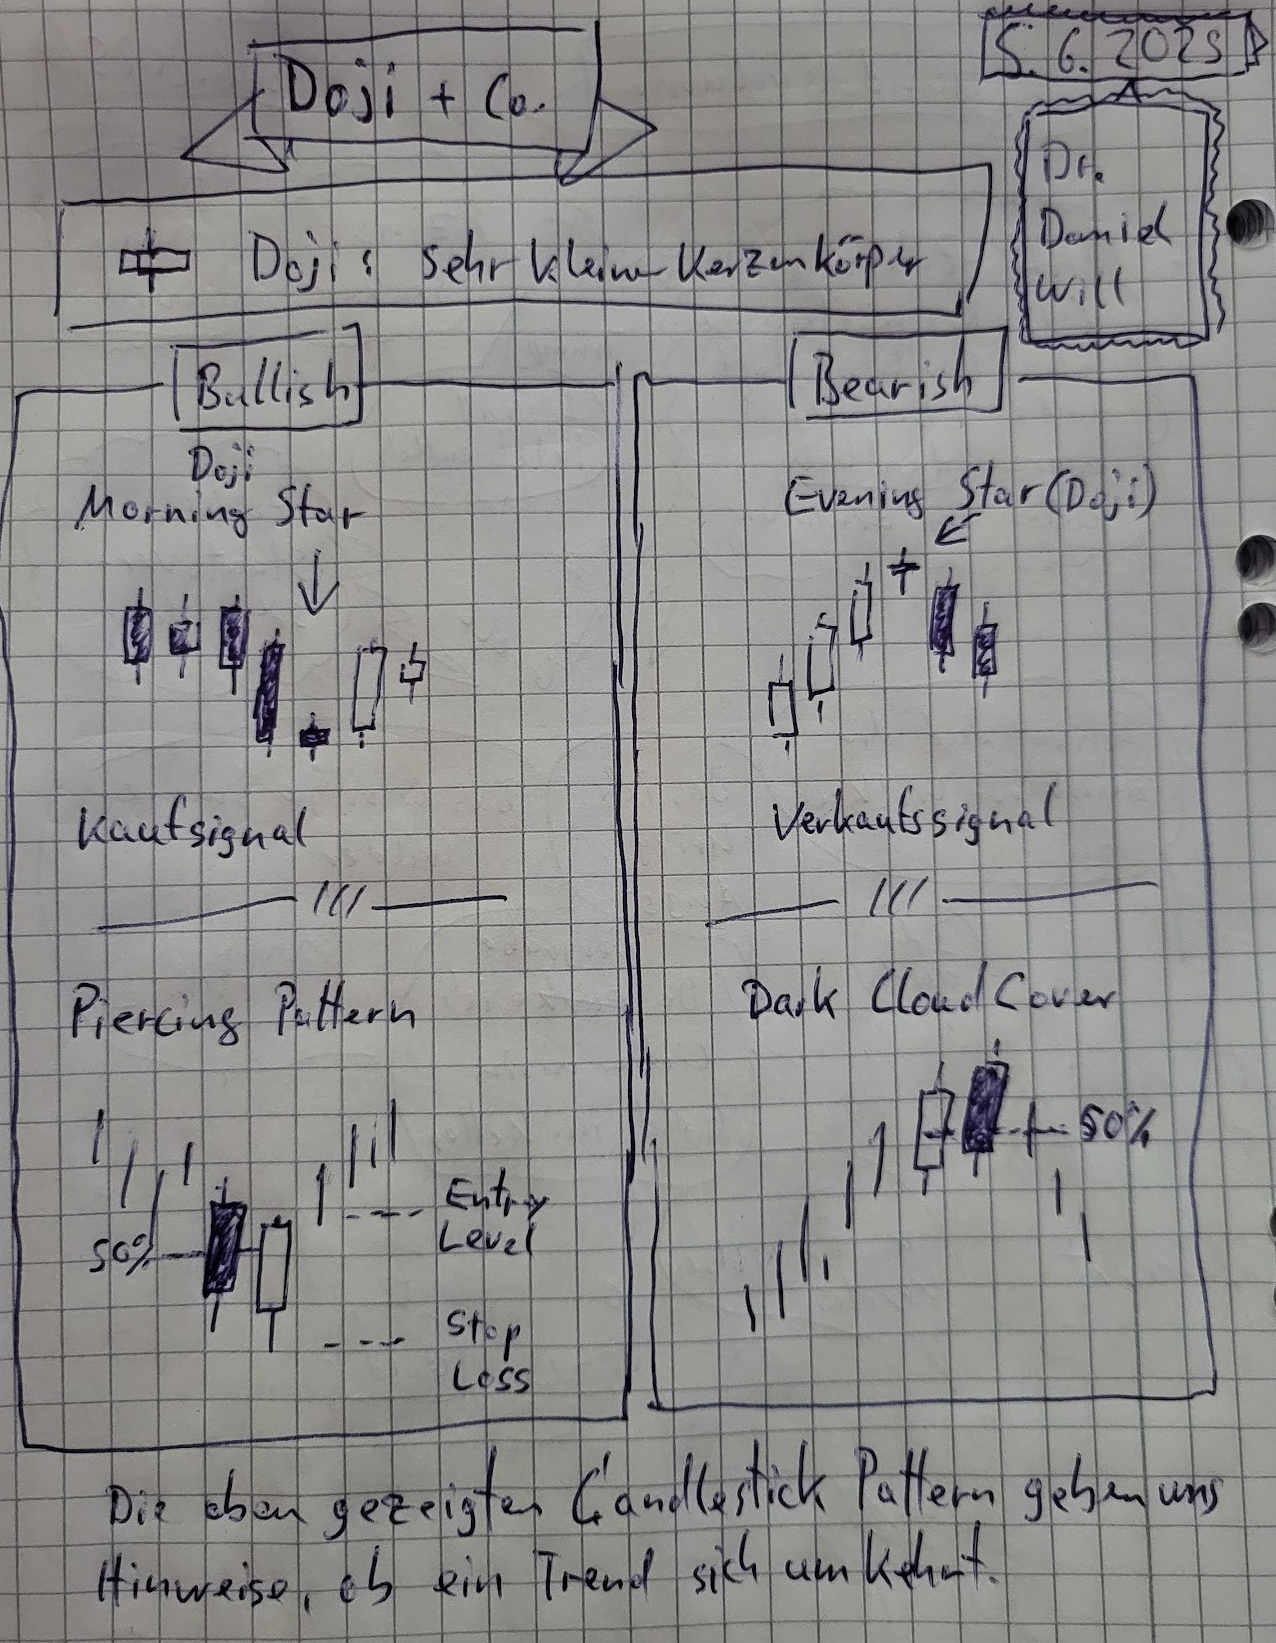 Doji + Co.
5. 6. 2025
Dr.
Daniel
Will
Doji: sehr kleiner Kerzenkörper
Bullish
Doji
Morning Star
Kaufsignal
Piercing Pattern
50%
Entry
Level
Stop
Loss
Bearish
Evening Star (Doji)
Verkaufssignal
Dark Cloud Cover
50%
Die oben gezeigten Candlestick Pattern geben uns
Hinweise, ob ein Trend sich umkehrt.